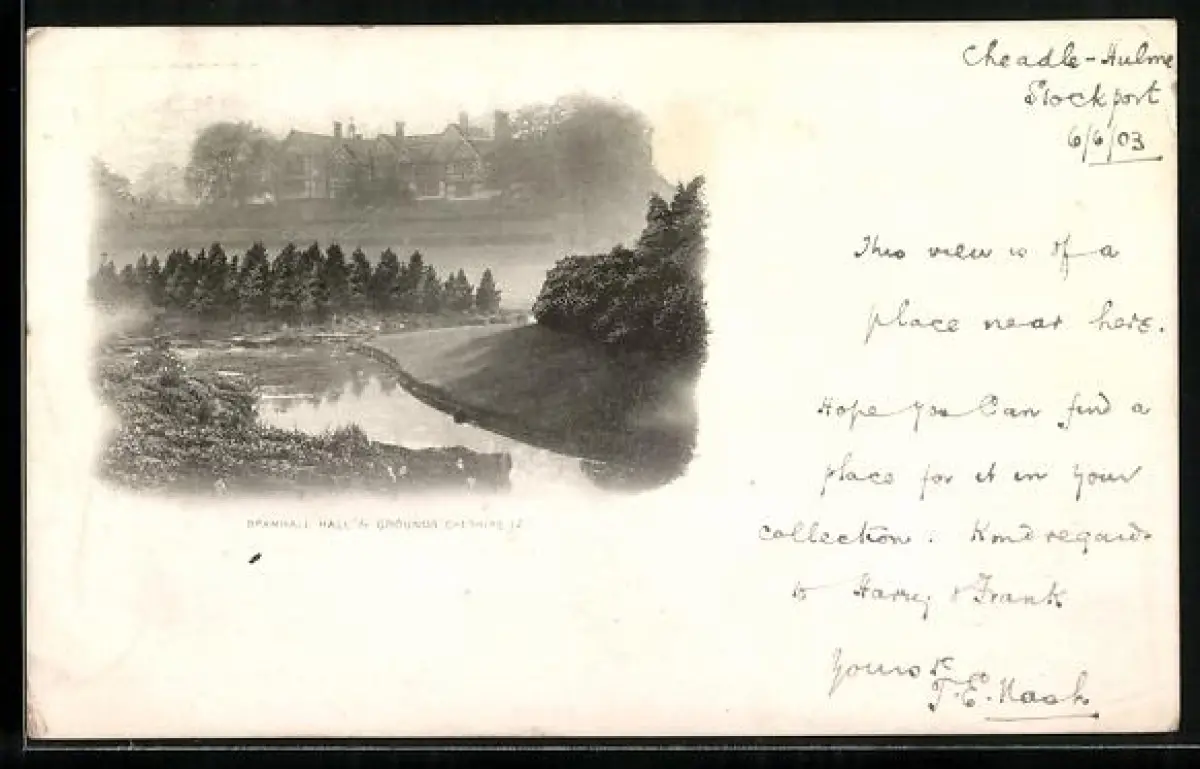 Cheadle-Hulme
Stockport
6/6/03
This view is of a
place near here.
Hope you can find a
place for it in your
collection. Kind regards
to Harry & Frank
Yours
T.E. Nash
BRAMHALL HALL & GROUNDS CHESHIRE